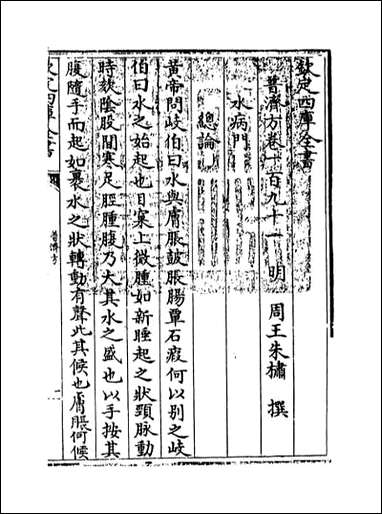 欽定四庫全書
普濟方卷一百九十一　明　周王朱橚　撰
水病門
總論
黃帝問岐伯曰水與膚脹鼓脹腸覃石瘕何以别之岐
伯曰水之始起也目窠上微腫如新睡起之狀頸脉動
時欬陰股間寒足脛腫腹乃大其水之盛也以手按其
腹隨手而起如裹水之狀轉動有聲此其候也膚脹何候
欽定四庫全書
普濟方